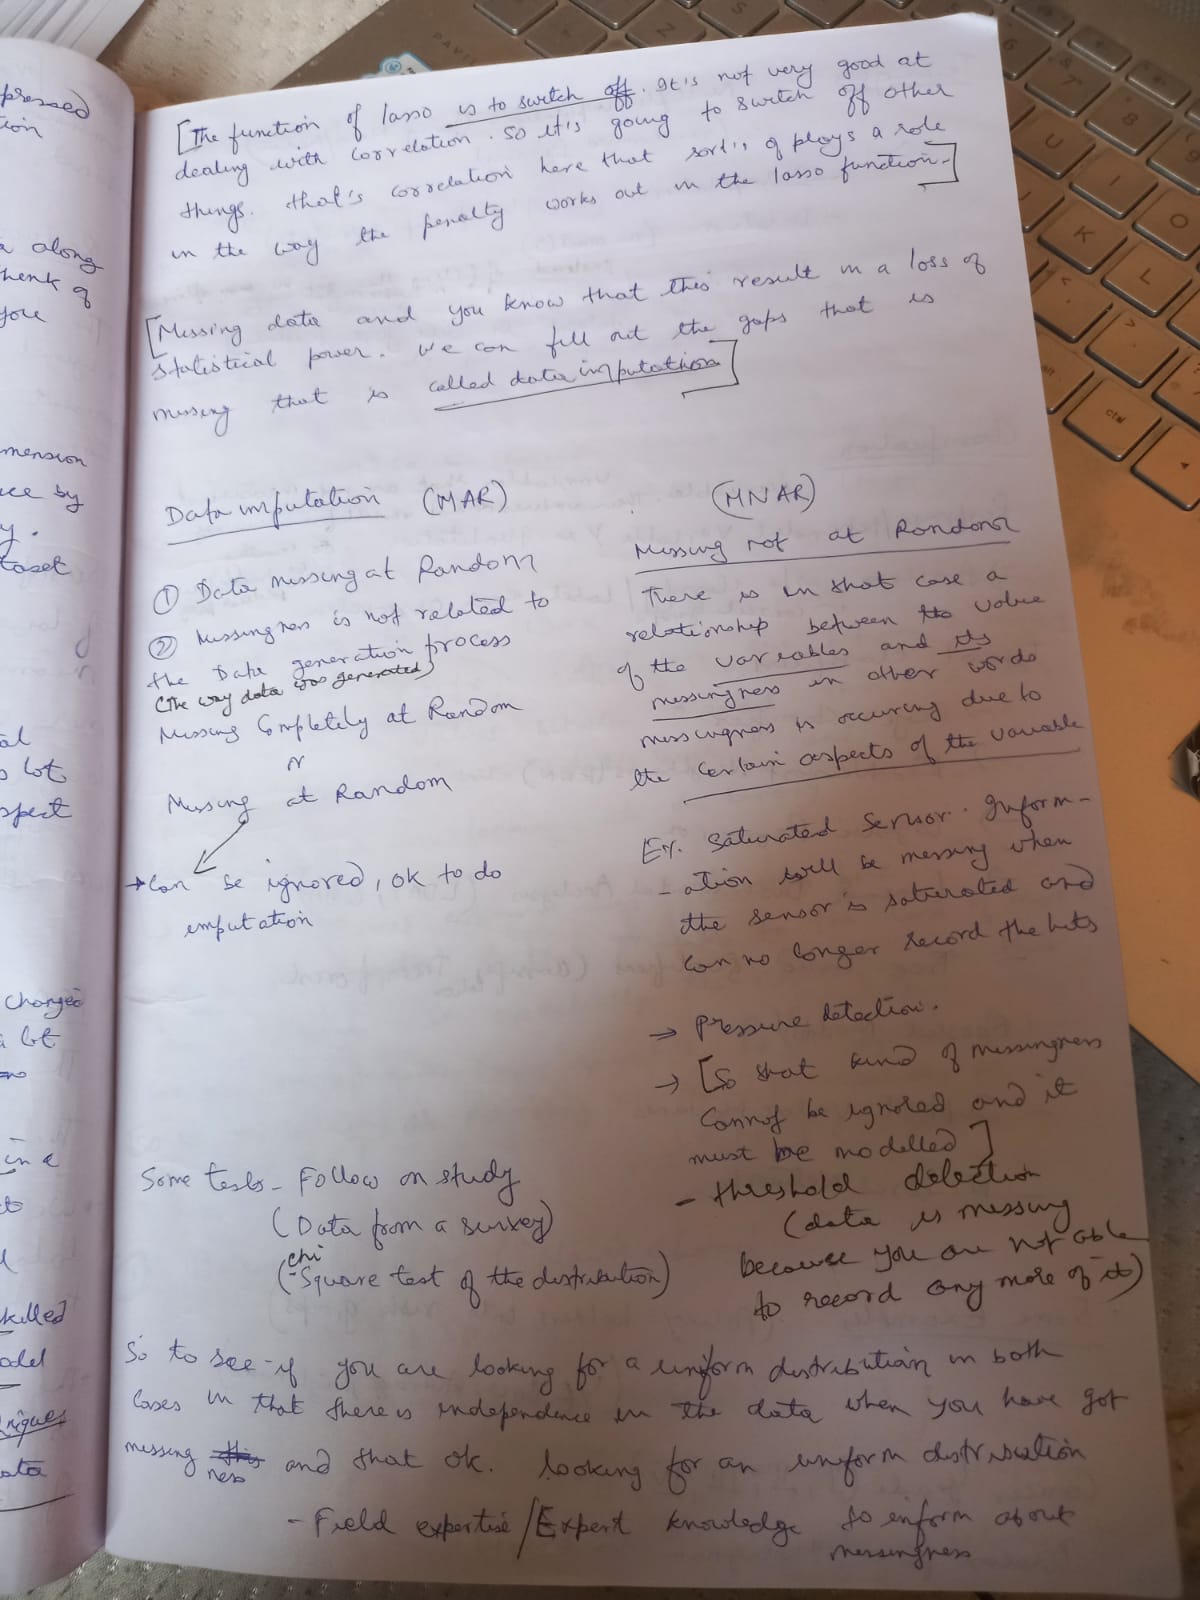 [The function of lasso is to switch off. It's not very good at
dealing with correlation. So it's going to switch off other
things. that's correlation here that sort's of plays a role
in the way the penalty works out in the lasso function.]
[Missing data and you know that this result in a loss of
statistical power. We can fill out the gaps that is
missing that is called data imputation]
Data imputation (MAR)
① Data missing at Random
② Missingness is not related to
the Data generation process
(The way data was generated)
Missing Completely at Random
or
Missing at Random
→ Can be ignored, ok to do
imputation
(MNAR)
Missing not at Random
There is in that case a
relationship between the value
of the variables and its
missingness in other words
missingness is occuring due to
the certain aspects of the variable
Ex. Saturated Sensor. Inform-
-ation will be missing when
the sensor is saturated and
can no longer record the hits
→ Pressure detection.
→ [So that kind of missingness
cannot be ignored and it
must be modelled]
- threshold detection
(data is missing
because you are not able
to record any more of it)
Some tests - Follow on study
(Data from a survey)
(chi-Square test of the distribution)
So to see if you are looking for a uniform distribution in both
cases in that there is independence in the data when you have got
missing ness and that ok. looking for an uniform distribution
- Field expertise / Expert knowledge to inform about
missingness
pressed
tion
a along
think of
you
mension
ce by
y.
taset
al
lot
spect
changed
a lot
in a
skilled
odel
niques
ata
PAVIL
K
L
I
O
U
7
8
6
ctrl
alt